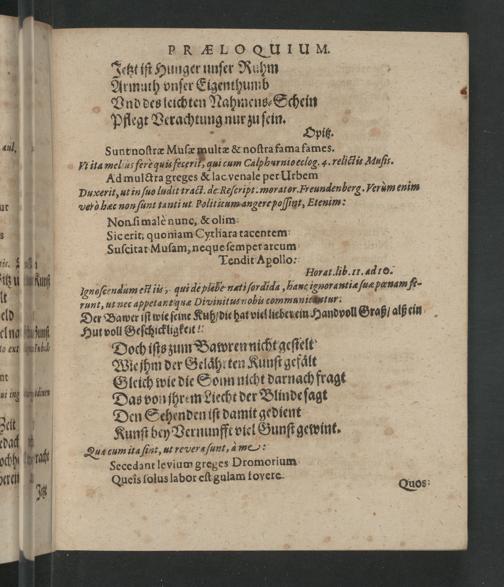 PRÆLOQUIUM.
Jetzt ist Hunger unser Ruhm
Armuth vnser Eigenthumb
Vnd des leichten Nahmens-Schein
Pflegt Verachtung nur zu sein.
Opitz.
Sunt nostræ Musæ multæ & nostra fama fames.
Vt ita melius ferè quis fecerit, qui cum Calphurnio eclog. 4. relictis Musis.
Ad mulctra greges & lac venale per Urbem
Duxerit, ut in suo ludit tract. de Rescript. morator. Freundenberg. Verùm enim
verò hæc non sunt tanti ut Politicum angere possint, Etenim:
Non si malè nunc, & olim
Sic erit, quoniam Cythara tacentem
Suscitat Musam, neque semper arcum
Tendit Apollo:
Horat. lib. 11. ad 10.
Ignoscendum est iis, qui de plebe nati sordida, hanc ignorantiæ suæ pœnam fe-
runt, ut nec appetant quæ Divinitus nobis communicantur:
Der Bawer ist wie seine Kuh/ die hat viel lieber ein Handvoll Graß/ alß ein
Hut voll Geschickligkeit!:
Doch ists zum Bawren nicht gestelt
Wie jhm der Gelährten Kunst gefält
Gleich wie die Sonn nicht darnach fragt
Das von jhrem Liecht der Blinde sagt
Den Sehenden ist damit gedient
Kunst bey Vernunfft viel Gunst gewint.
Quæ cum ita sint, ut revera sunt, à me:
Secedant levium greges Dromorium
Queis solus labor est gulam fovere.
Quos: